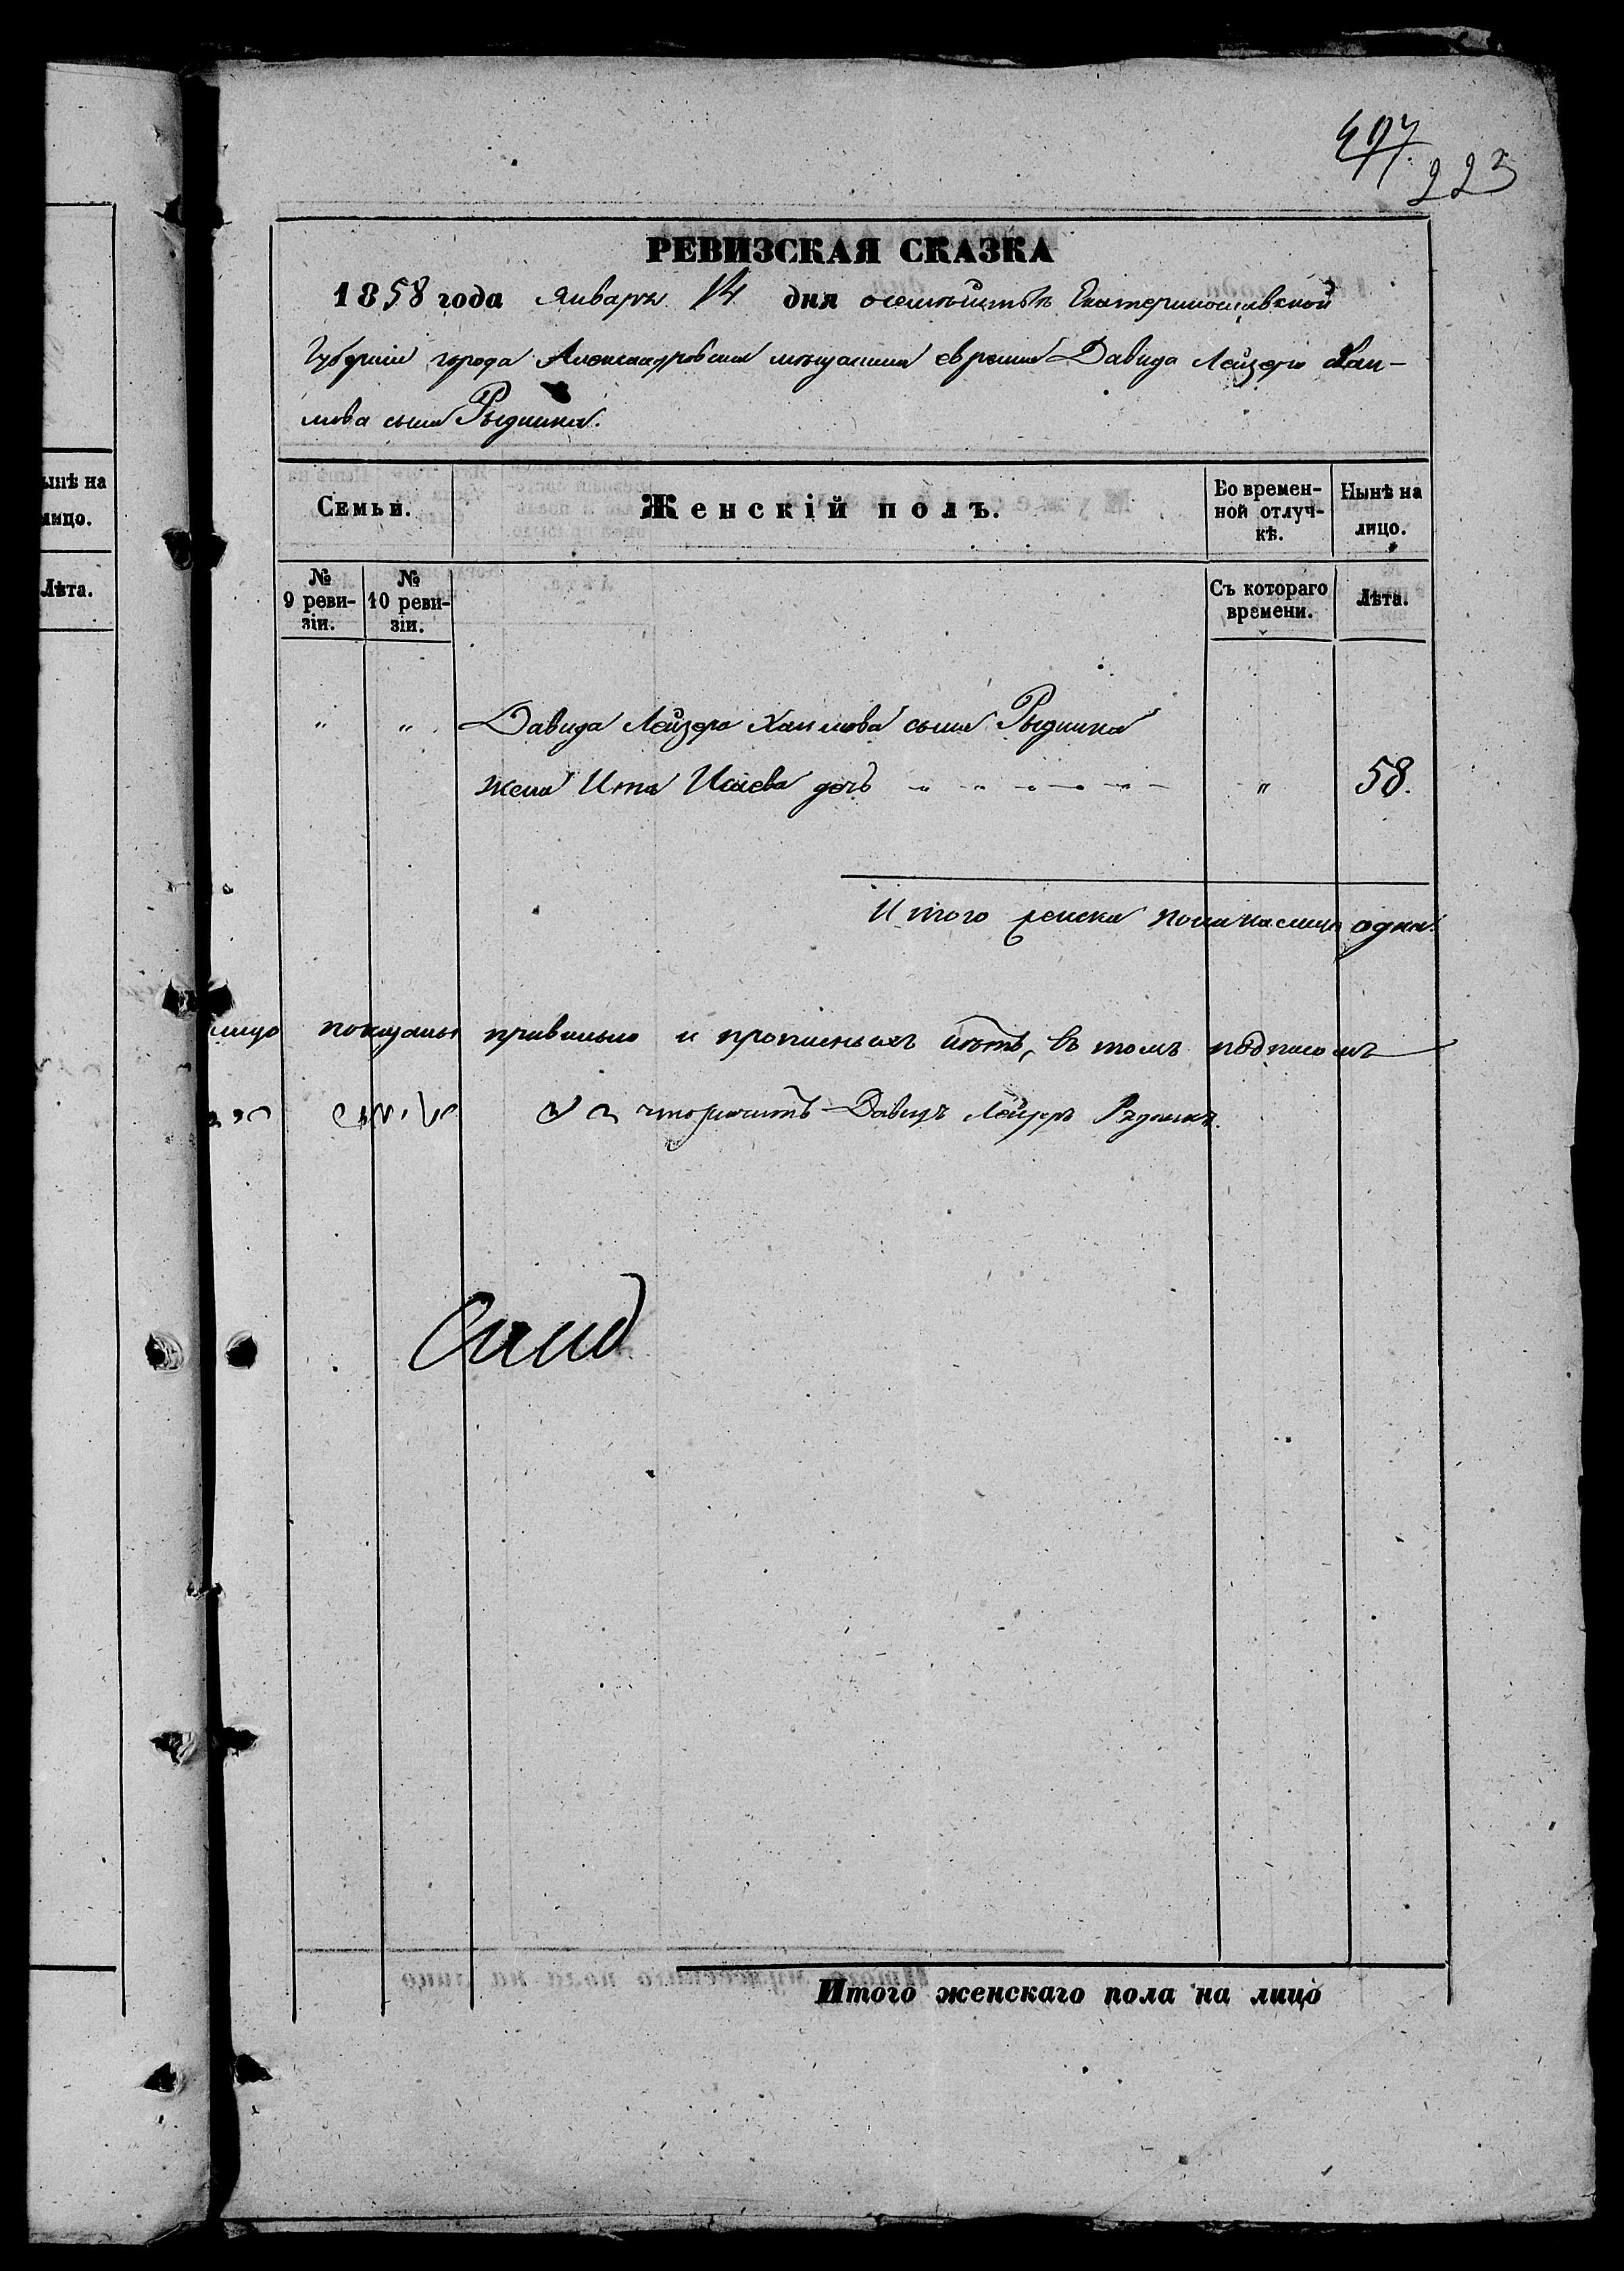 497
223
РЕВИЗСКАЯ СКАЗКА
1858 года Января 14 дня Екатеринославской
Губерніи города Александровска мещанина еврея Давида Лейзера Хаи-
мова сына Рыдника.
ынѣ на
лицо.
Лѣта.
Семьи.
Женскій полъ.
Во времен-
ной отлуч-
кѣ.
Нынѣ на
лицо.
№
9 реви-
зіи.
№
10 реви-
зіи.
Съ котораго
времени.
Лѣта.
" " Давида Лейзера Хаимова сына Рыдника
жена Ита Исаева дочь " 58.
Итого женска пола налицо одна.
лицо показаны правильно и прописныхъ нѣтъ, въ томъ подписомъ
что значитъ Давидъ Лейзеръ Рыдникъ.
Итого женскаго пола на лицо